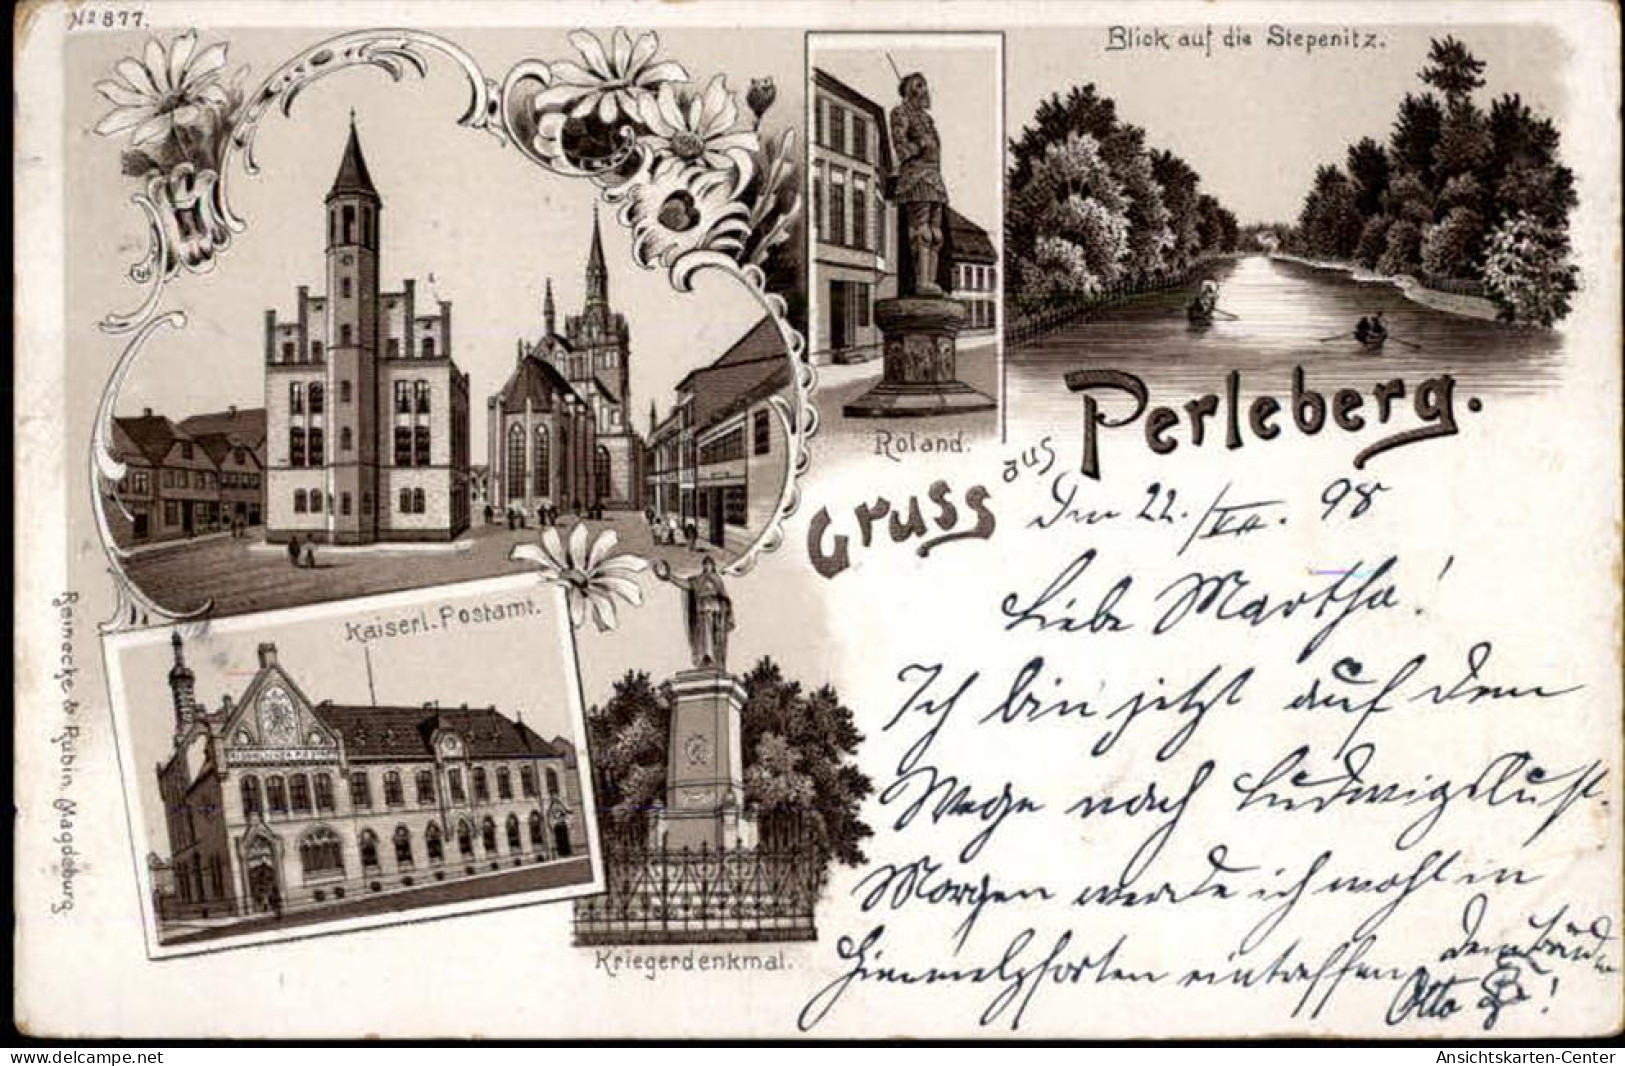 No 877.
Blick auf die Stepenitz.
Roland.
Gruss aus Perleberg.
Kaiserl. Postamt.
Kriegerdenkmal.
Reinecke & Rubin, Magdeburg.
Den 22./VII. 98
Liebe Martha!
Ich bin jetzt auf dem
Wege nach Ludwigslust.
Morgen werde ich wohl in
Himmelpforten eintreffen
Dein Bruder
Otto
www.delcampe.net
Ansichtskarten-Center